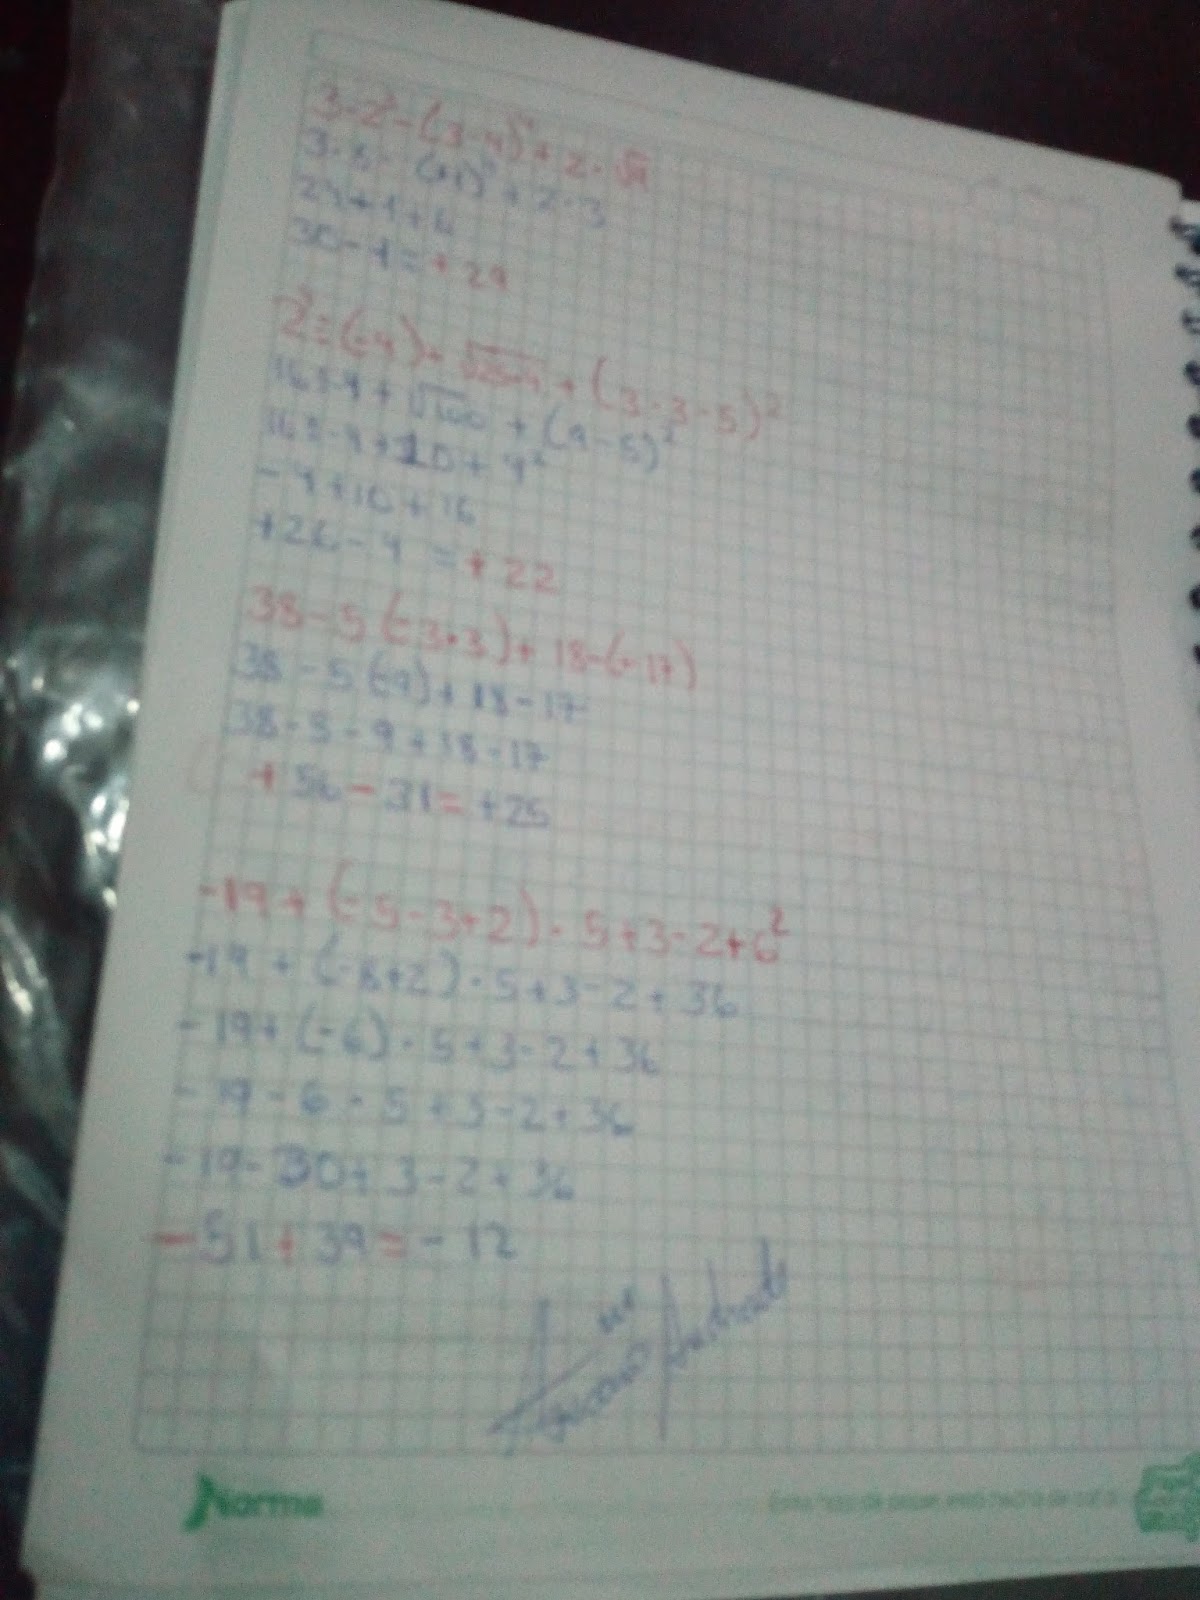 3·2³-(3-4)⁴+2·√9
3·8-(-1)⁴+2·3
24+1+6
30-1=+29
2⁴÷(-4)+√25·4+(3·3-5)²
16÷-4+√100+(9-5)²
16÷-4+10+4²
-4+10+16
+26-4=+22
38-5(-3·3)+18-(-17)
38-5(-9)+18-17
38-5-9+18-17
+56-31=+25
-19+(-5-3+2)·5+3-2+6²
-19+(-8+2)·5+3-2+36
-19+(-6)·5+3-2+36
-19-6·5+3-2+36
-19-30+3-2+36
-51+39=-12
Norma